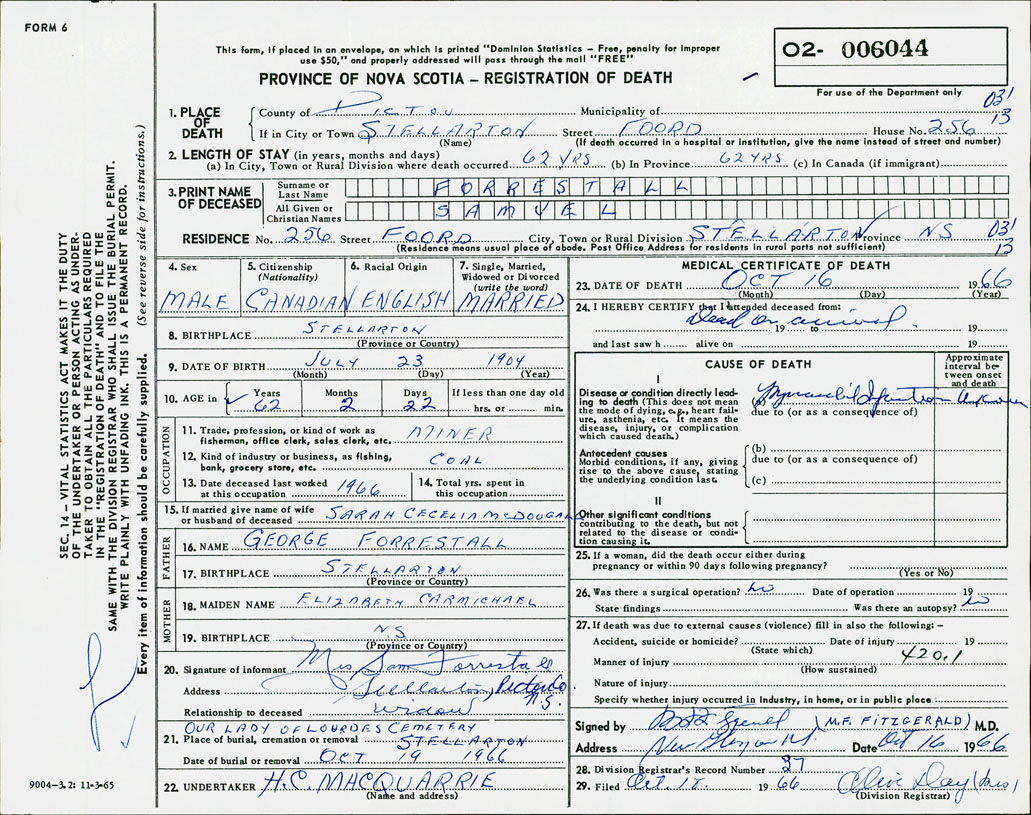 FORM 6
This form, if placed in an envelope, on which is printed "Dominion Statistics – Free, penalty for improper
use $50," and properly addressed will pass through the mail "FREE"
PROVINCE OF NOVA SCOTIA – REGISTRATION OF DEATH
02- 006044
For use of the Department only
031
13
1. PLACE OF DEATH
County of PICTOU Municipality of
If in City or Town STELLARTON Street FOORD House No. 256
(Name) (If death occurred in a hospital or institution, give the name instead of street and number)
2. LENGTH OF STAY (in years, months and days)
(a) In City, Town or Rural Division where death occurred 62 YRS (b) In Province 62 YRS (c) In Canada (if immigrant)
3. PRINT NAME OF DECEASED
Surname or Last Name FORRESTALL
All Given or Christian Names SAMUEL
RESIDENCE No. 256 Street FOORD City, Town or Rural Division STELLARTON Province NS
031
13
(Residence means usual place of abode. Post Office Address for residents in rural parts not sufficient)
4. Sex
MALE
5. Citizenship
(Nationality)
CANADIAN
6. Racial Origin
ENGLISH
7. Single, Married,
Widowed or Divorced
(write the word)
MARRIED
8. BIRTHPLACE STELLARTON
(Province or Country)
9. DATE OF BIRTH JULY 23 1904
(Month) (Day) (Year)
10. AGE in
Years Months Days If less than one day old
62 2 22 hrs. or min.
OCCUPATION
11. Trade, profession, or kind of work as
fisherman, office clerk, sales clerk, etc. MINER
12. Kind of industry or business, as fishing,
bank, grocery store, etc. COAL
13. Date deceased last worked
at this occupation 1966
14. Total yrs. spent in
this occupation
15. If married give name of wife
or husband of deceased SARAH CECELIA McDOUGALL
FATHER
16. NAME GEORGE FORRESTALL
17. BIRTHPLACE STELLARTON
(Province or Country)
MOTHER
18. MAIDEN NAME ELIZABETH CARMICHAEL
19. BIRTHPLACE N.S.
(Province or Country)
20. Signature of informant Mrs Sam Forrestall
Address Stellarton, Pictou Co. N.S.
Relationship to deceased Widow
OUR LADY OF LOURDES CEMETERY
21. Place of burial, cremation or removal STELLARTON
Date of burial or removal OCT 19 1966
22. UNDERTAKER H.C. MACQUARRIE
(Name and address)
MEDICAL CERTIFICATE OF DEATH
23. DATE OF DEATH OCT 16 1966
(Month) (Day) (Year)
24. I HEREBY CERTIFY that I attended deceased from:
Dead on arrival
19 19
and last saw h alive on 19
CAUSE OF DEATH
Approximate
interval be-
tween onset
and death
I
Disease or condition directly lead-
ing to death (This does not mean
the mode of dying, e.g., heart fail-
ure, asthenia, etc. It means the
disease, injury, or complication
which caused death.)
(a) Myocardial Infarction Unknown
due to (or as a consequence of)
Antecedent causes
Morbid conditions, if any, giving
rise to the above cause, stating
the underlying condition last.
(b)
due to (or as a consequence of)
(c)
II
Other significant conditions
contributing to the death, but not
related to the disease or condi-
tion causing it.
25. If a woman, did the death occur either during
pregnancy or within 90 days following pregnancy?
(Yes or No)
26. Was there a surgical operation? No Date of operation 19
State findings Was there an autopsy? No
27. If death was due to external causes (violence) fill in also the following: –
Accident, suicide or homicide? Date of injury 19
(State which)
420.1
Manner of injury
(How sustained)
Nature of injury
Specify whether injury occurred in industry, in home, or in public place
Signed by (M.F. FITZGERALD) M.D.
Address New Glasgow N.S. Date Oct 16 1966
28. Division Registrar's Record Number 37
29. Filed Oct. 18. 1966 Olive Day
(Division Registrar)
SEC. 14 – VITAL STATISTICS ACT MAKES IT THE DUTY
OF THE UNDERTAKER OR PERSON ACTING AS UNDER-
TAKER TO OBTAIN ALL THE PARTICULARS REQUIRED
IN THE "REGISTRATION OF DEATH" AND FILE THE
SAME WITH THE DIVISION REGISTRAR WHO SHALL ISSUE THE BURIAL PERMIT.
WRITE PLAINLY WITH UNFADING INK. THIS IS A PERMANENT RECORD.
Every item of information should be carefully supplied. (See reverse side for instructions.)
9004-3.2: 11-3-65